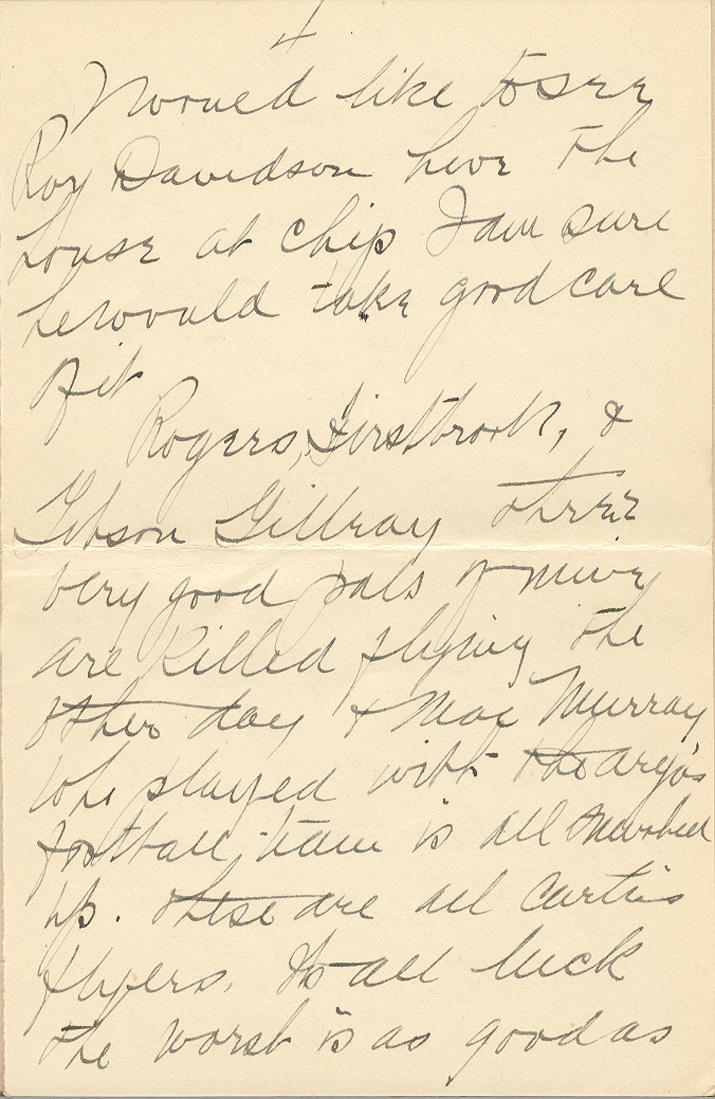 4
Would like to see
Roy Davidson have the
house at chip I am sure
he would take good care
of it
Rogers, Firstbrook, &
Gibson Gillray three
very good pals of mine
are killed flying the
other day & Mac Murray
who played with the argo's
football team is all smashed
up. these are all Curtis
flyers. Its all luck
the worst is as good as